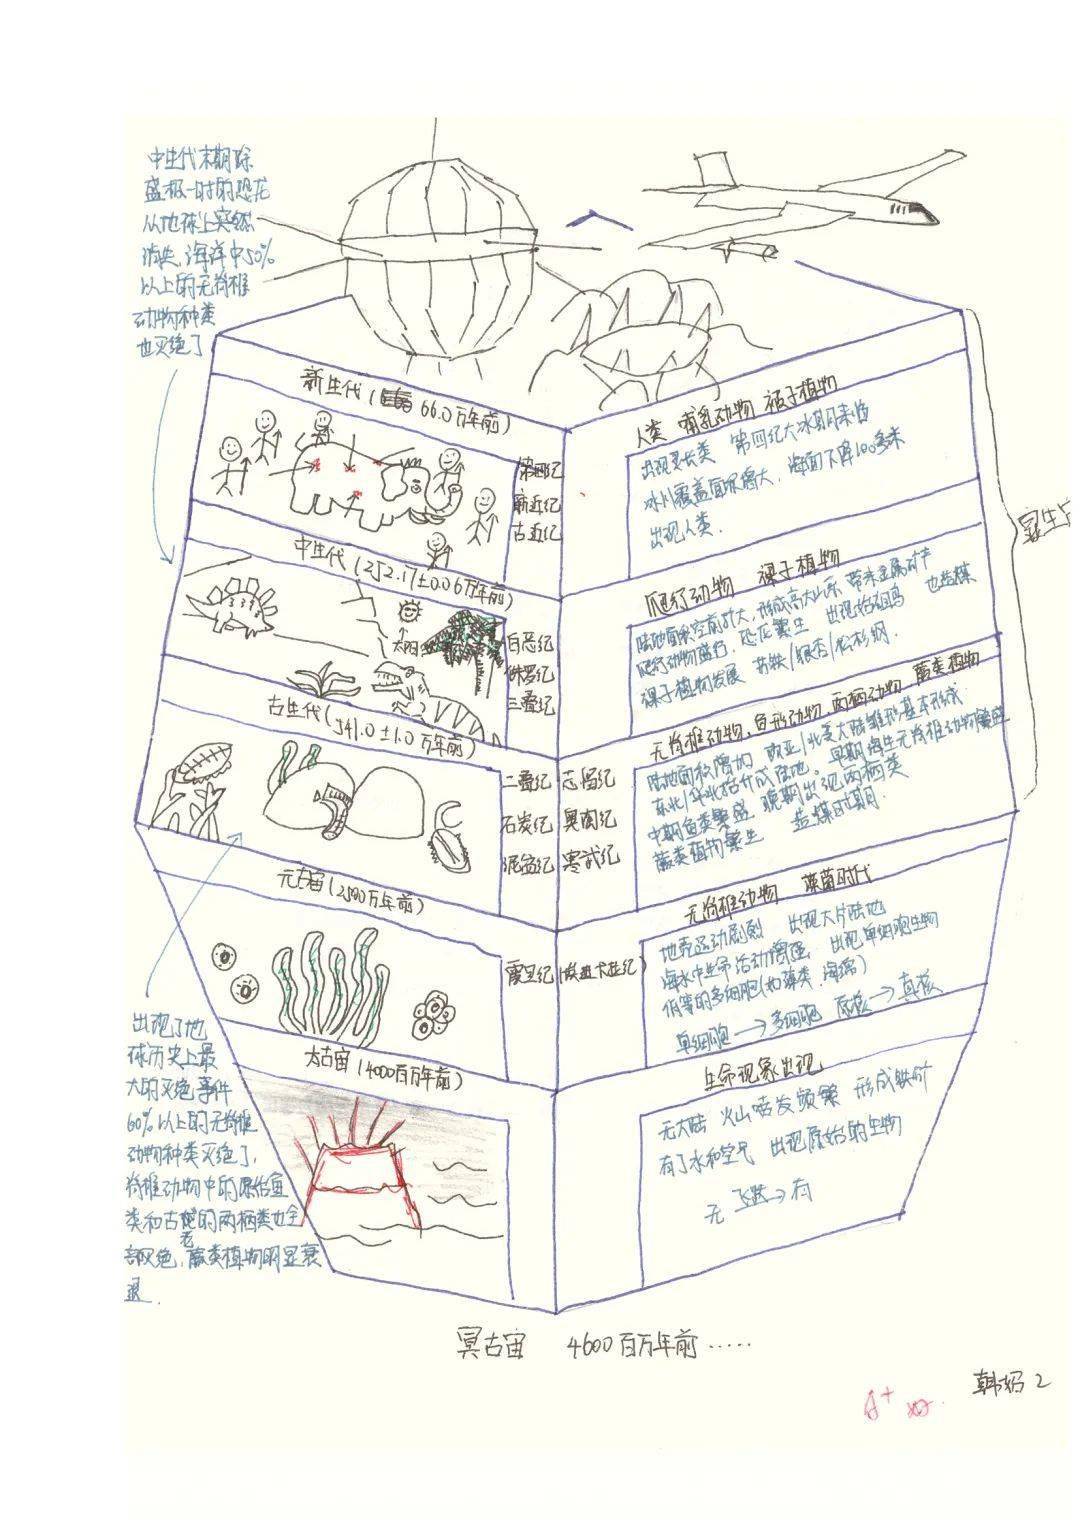 中生代末期除
盛极一时的恐龙
从地球上突然
消失,海洋中50%
以上的无脊椎
动物种类
也灭绝了
新生代(66.0万年前)
第四纪
新近纪
古近纪
人类 哺乳动物 被子植物
出现灵长类 第四纪大冰期来临
冰川覆盖面积增大,海面下降100多米
出现人类.
中生代(252.17±0.06万年前)
太阳
白恶纪
侏罗纪
三叠纪
爬行动物 裸子植物
陆地面积空前扩大,形成高大山系 带来金属矿产
爬行动物盛行,恐龙繁生 出现始祖鸟 也造煤
裸子植物发展 苏铁/银杏/松杉纲.
古生代(541.0±1.0万年前)
二叠纪 志留纪
石炭纪 奥陶纪
泥盆纪 寒武纪
无脊椎动物、鱼形动物、两栖动物 蕨类植物
陆地面积增加 欧亚/北美大陆雏形基本形成
东北/华北抬升成陆地。早期海生无脊椎动物繁盛
中期鱼类繁盛 晚期出现两栖类
蕨类植物繁生 造煤时期.
元古宙(2500万年前)
震旦纪 埃迪卡拉纪
无脊椎动物 藻菌时代
地壳运动剧烈 出现大片陆地
海水中生命活动增强 出现单细胞生物
低等的多细胞(如藻类、海绵)
单细胞→多细胞 原核→真核
太古宙(4000百万年前)
生命现象出现
无大陆 火山喷发频繁 形成铁矿
有了水和空气 出现原始的生物
无 飞跃→有
出现了地
球历史上最
大的灭绝事件
60%以上的无脊椎
动物种类灭绝了,
脊椎动物中的原始鱼
类和古老的两栖类也全
部灭绝,蕨类植物明显衰
退.
冥古宙 4600百万年前……
A+ 好.